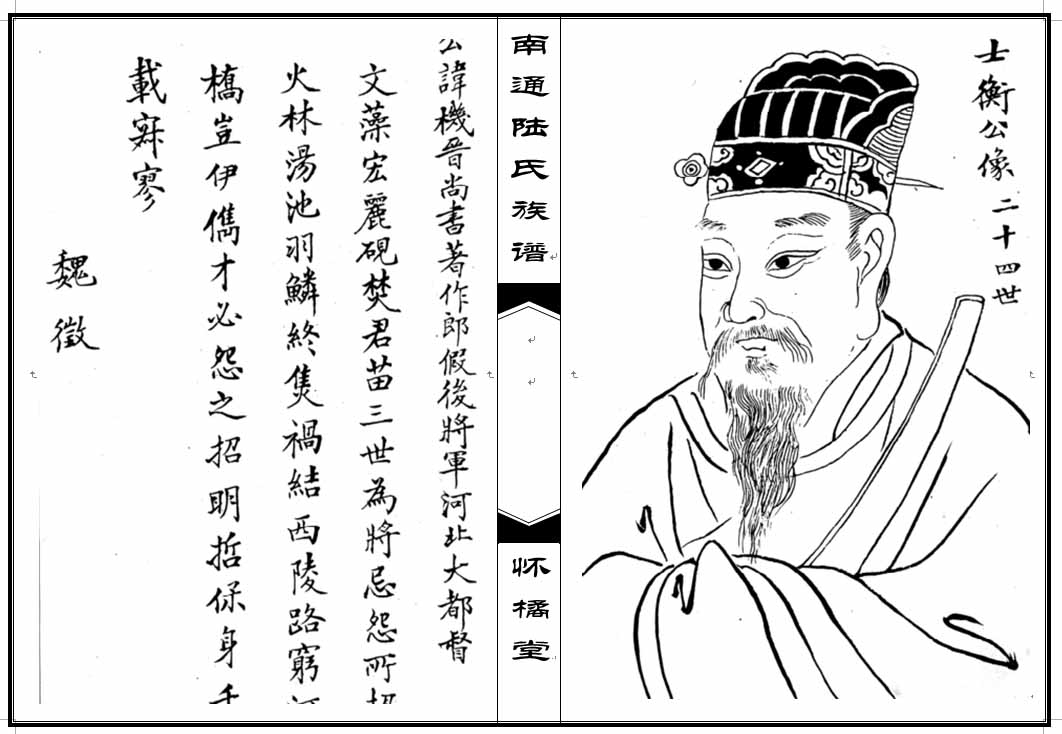 士衡公像 二十四世
南通陆氏族谱
怀橘堂
公諱機晉尚書著作郎假後將軍河北大都督
文藻宏麗硯焚君苗三世為將忌怨所
火林湯池羽鱗終隻禍結西陵路窮
橋豈伊儁才必怨之招明哲保身千
載寂寥
魏徵